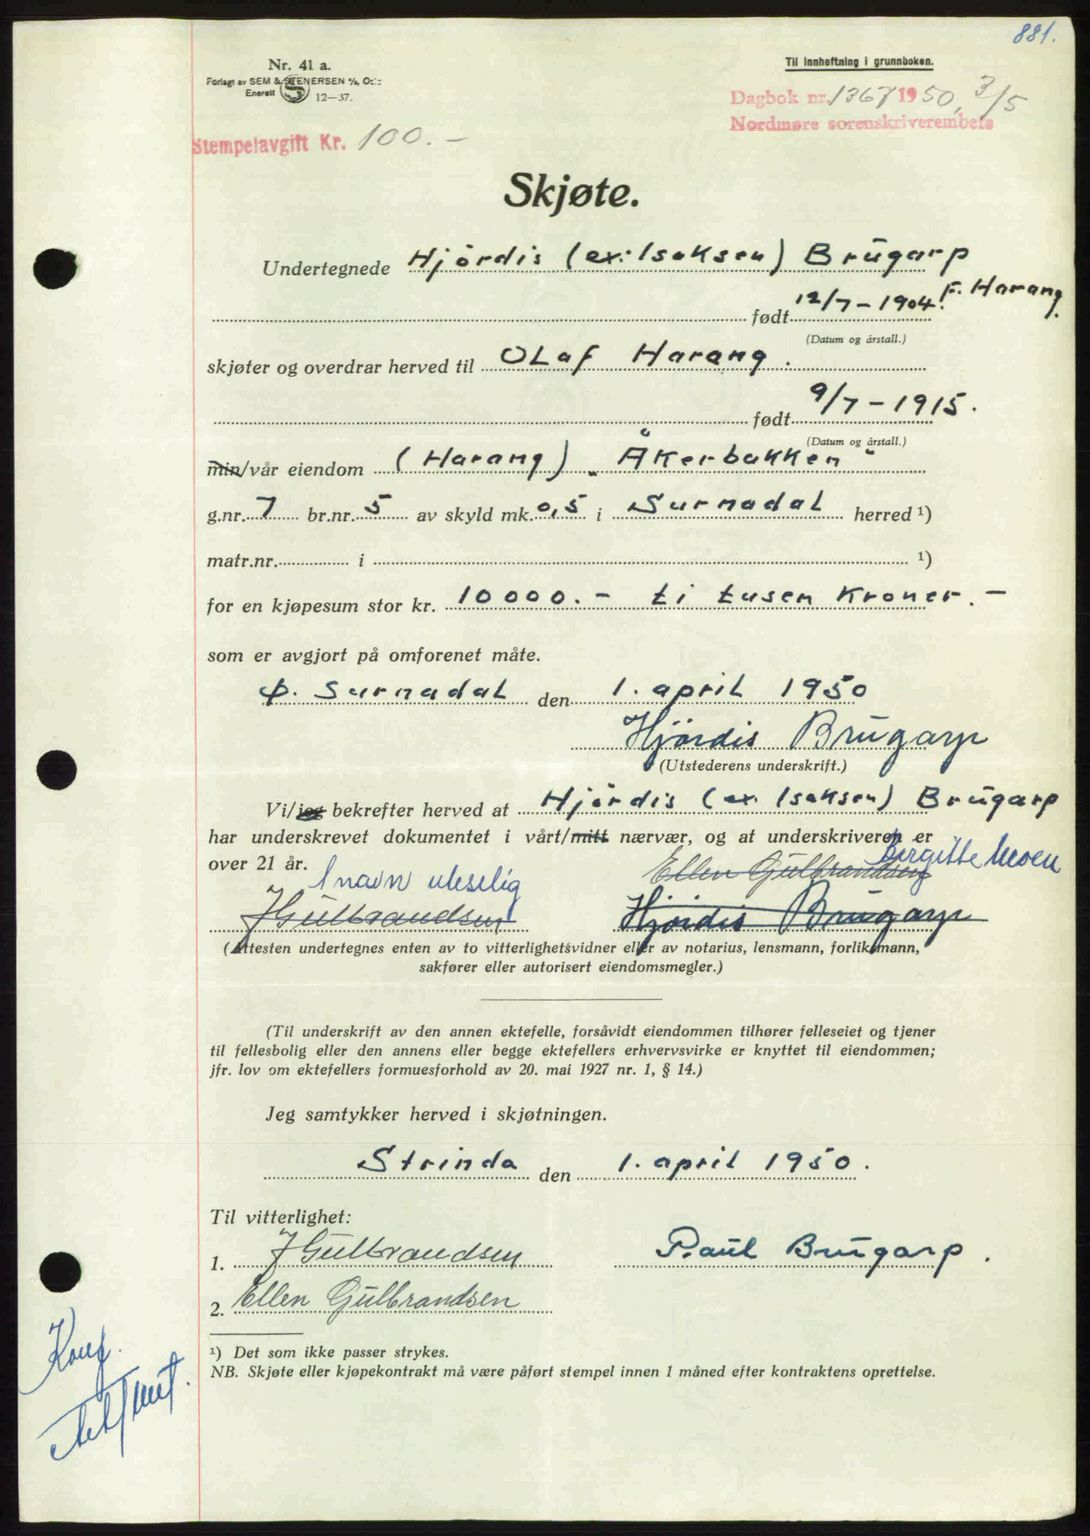 881.
Nr. 41 a.
Forlagt av SEM & STENERSEN A/S, Oslo
Enerett 12—37.
Til innheftning i grunnboken.
Dagbok nr. 1367 1950, 3/5
Nordmøre sorenskriverembete
Stempelavgift Kr. 100.-
Skjøte.
Undertegnede Hjördis (ex: Isaksen) Brügarp
F. Harang.
født 12/7-1904.
(Datum og årstall.)
skjøter og overdrar herved til OLaf Harang.
født 9/7-1915.
(Datum og årstall.)
min/vår eiendom (Harang) „Åkerbakken"
g.nr. 7 br.nr. 5 av skyld mk. 0,5 i Surnadal herred ¹)
matr.nr. i ¹)
for en kjøpesum stor kr. 10000.- ti tusen kroner.-
som er avgjort på omforenet måte.
Ø. Surnadal den 1. april 1950
Hjördis Brügarp
(Utstederens underskrift.)
Vi/jeg bekrefter herved at Hjördis (ex. Isaksen) Brügarp
har underskrevet dokumentet i vårt/mitt nærvær, og at underskriveren er
over 21 år.
Birgitte Moen
1 navn uleselig
Ellen Gulbrandsen
JGulbrandsen
Hjördis Brügarp
(Attesten undertegnes enten av to vitterlighetsvidner eller av notarius, lensmann, forliksmann,
sakfører eller autorisert eiendomsmegler.)
(Til underskrift av den annen ektefelle, forsåvidt eiendommen tilhører felleseiet og tjener
til fellesbolig eller den annens eller begge ektefellers erhvervsvirke er knyttet til eiendommen;
jfr. lov om ektefellers formuesforhold av 20. mai 1927 nr. 1, § 14.)
Jeg samtykker herved i skjøtningen.
Strinda den 1. april 1950.
Til vitterlighet:
1. JGulbrandsen
Paul Brügarp.
2. Ellen Gulbrandsen
¹) Det som ikke passer strykes.
NB. Skjøte eller kjøpekontrakt må være påført stempel innen 1 måned efter kontraktens oprettelse.
Konf.